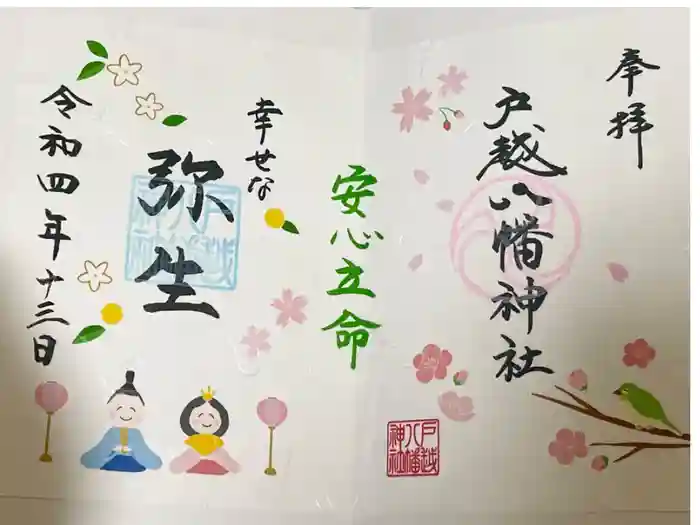 奉拝
戸越八幡神社
安心立命
幸せな
弥生
令和四年十三日
戸越
八幡
神社
戸越
八幡
神社